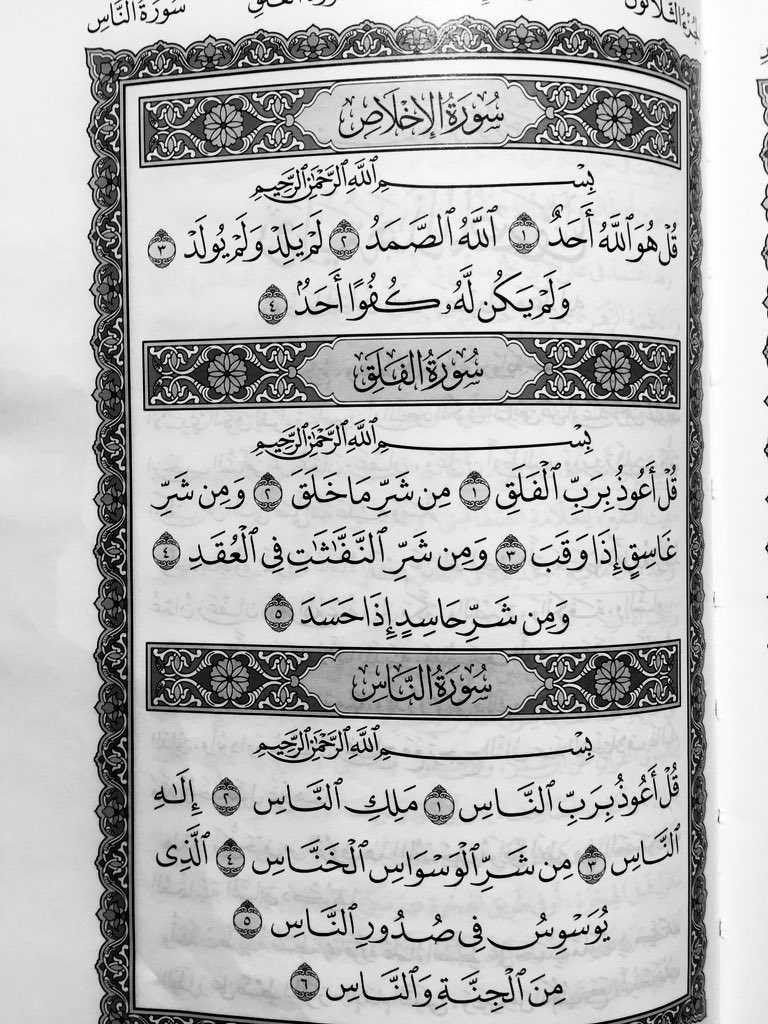 الجزء الثلاثون سورة الفلق سورة الناس
سُورَةُ الإِخْلَاصِ
بِسْمِ ٱللَّهِ ٱلرَّحْمَٰنِ ٱلرَّحِيمِ
قُلْ هُوَ ٱللَّهُ أَحَدٌ ١ ٱللَّهُ ٱلصَّمَدُ ٢ لَمْ يَلِدْ وَلَمْ يُولَدْ ٣
وَلَمْ يَكُن لَّهُۥ كُفُوًا أَحَدٌۢ ٤
سُورَةُ الفَلَقِ
بِسْمِ ٱللَّهِ ٱلرَّحْمَٰنِ ٱلرَّحِيمِ
قُلْ أَعُوذُ بِرَبِّ ٱلْفَلَقِ ١ مِن شَرِّ مَا خَلَقَ ٢ وَمِن شَرِّ
غَاسِقٍ إِذَا وَقَبَ ٣ وَمِن شَرِّ ٱلنَّفَّٰثَٰتِ فِى ٱلْعُقَدِ ٤
وَمِن شَرِّ حَاسِدٍ إِذَا حَسَدَ ٥
سُورَةُ النَّاسِ
بِسْمِ ٱللَّهِ ٱلرَّحْمَٰنِ ٱلرَّحِيمِ
قُلْ أَعُوذُ بِرَبِّ ٱلنَّاسِ ١ مَلِكِ ٱلنَّاسِ ٢ إِلَٰهِ
ٱلنَّاسِ ٣ مِن شَرِّ ٱلْوَسْوَاسِ ٱلْخَنَّاسِ ٤ ٱلَّذِى
يُوَسْوِسُ فِى صُدُورِ ٱلنَّاسِ ٥
مِنَ ٱلْجِنَّةِ وَٱلنَّاسِ ٦